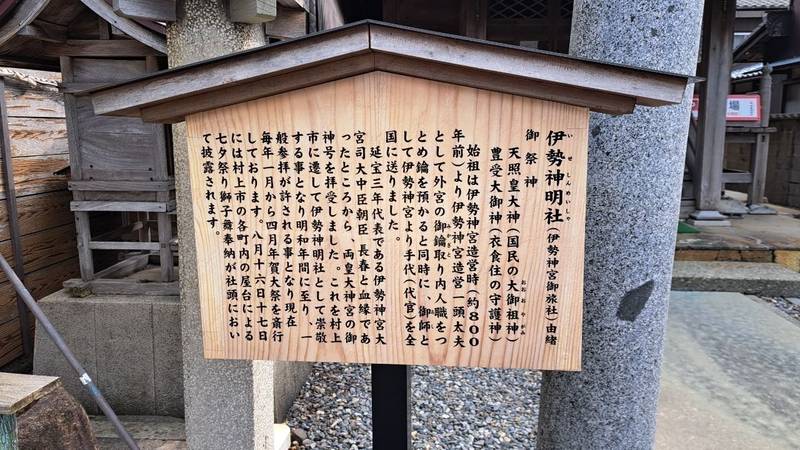 伊勢神明社(伊勢神宮御旅社)由緒
いせしんめいしゃ
御祭神
天照皇大神(国民の大御祖神)
おおおやがみ
豊受大御神(衣食住の守護神)
始祖は伊勢神宮造営時(約800
年前)より伊勢神宮造営一頭太夫
として外宮の御鑰取り内人職をつ
みかぎと
とめ鑰を預かると同時に、御師と
して伊勢神宮より手代(代官)を全
国に送りました。
延宝三年代表である伊勢神宮大
宮司大中臣朝臣 長春と血縁であ
ったところから、両皇大神宮の御
神号を拝受しました。これを村上
市に遷して伊勢神明社として崇敬
する事となり明和年間に至り、一
般参拝が許される事となり現在
毎年一月から四月年賀大祭を斎行
しております。八月十六日十七日
には村上市の各町内の屋台による
七夕祭り獅子舞奉納が社頭におい
て披露されます。
場